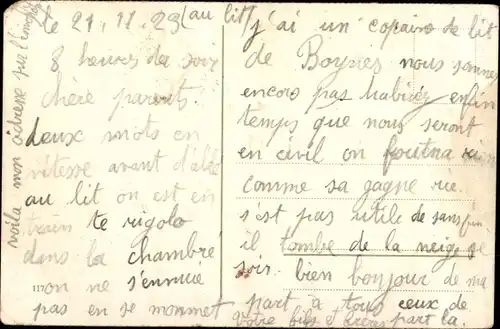 le 21.11.29 (au lit)
8 heures du soir
chère parents.
deux mots en
vitesse avant d'allé
au lit on est en
train te rigolo
dans la chambre
on ne s'ennue
pas en se momnet
j'ai un copain de lit
de Boynes nous sommes
encors pas habiréz enfin
temps que nous seront
en civil on foutna rien
comme sa gagne rie.
s'est pas utile de sans fou
il tombe de la neige se
soir. bien bonjour de ma
part à tous ceux de
votre fils et frère part la.
voila mon adresse sur l'